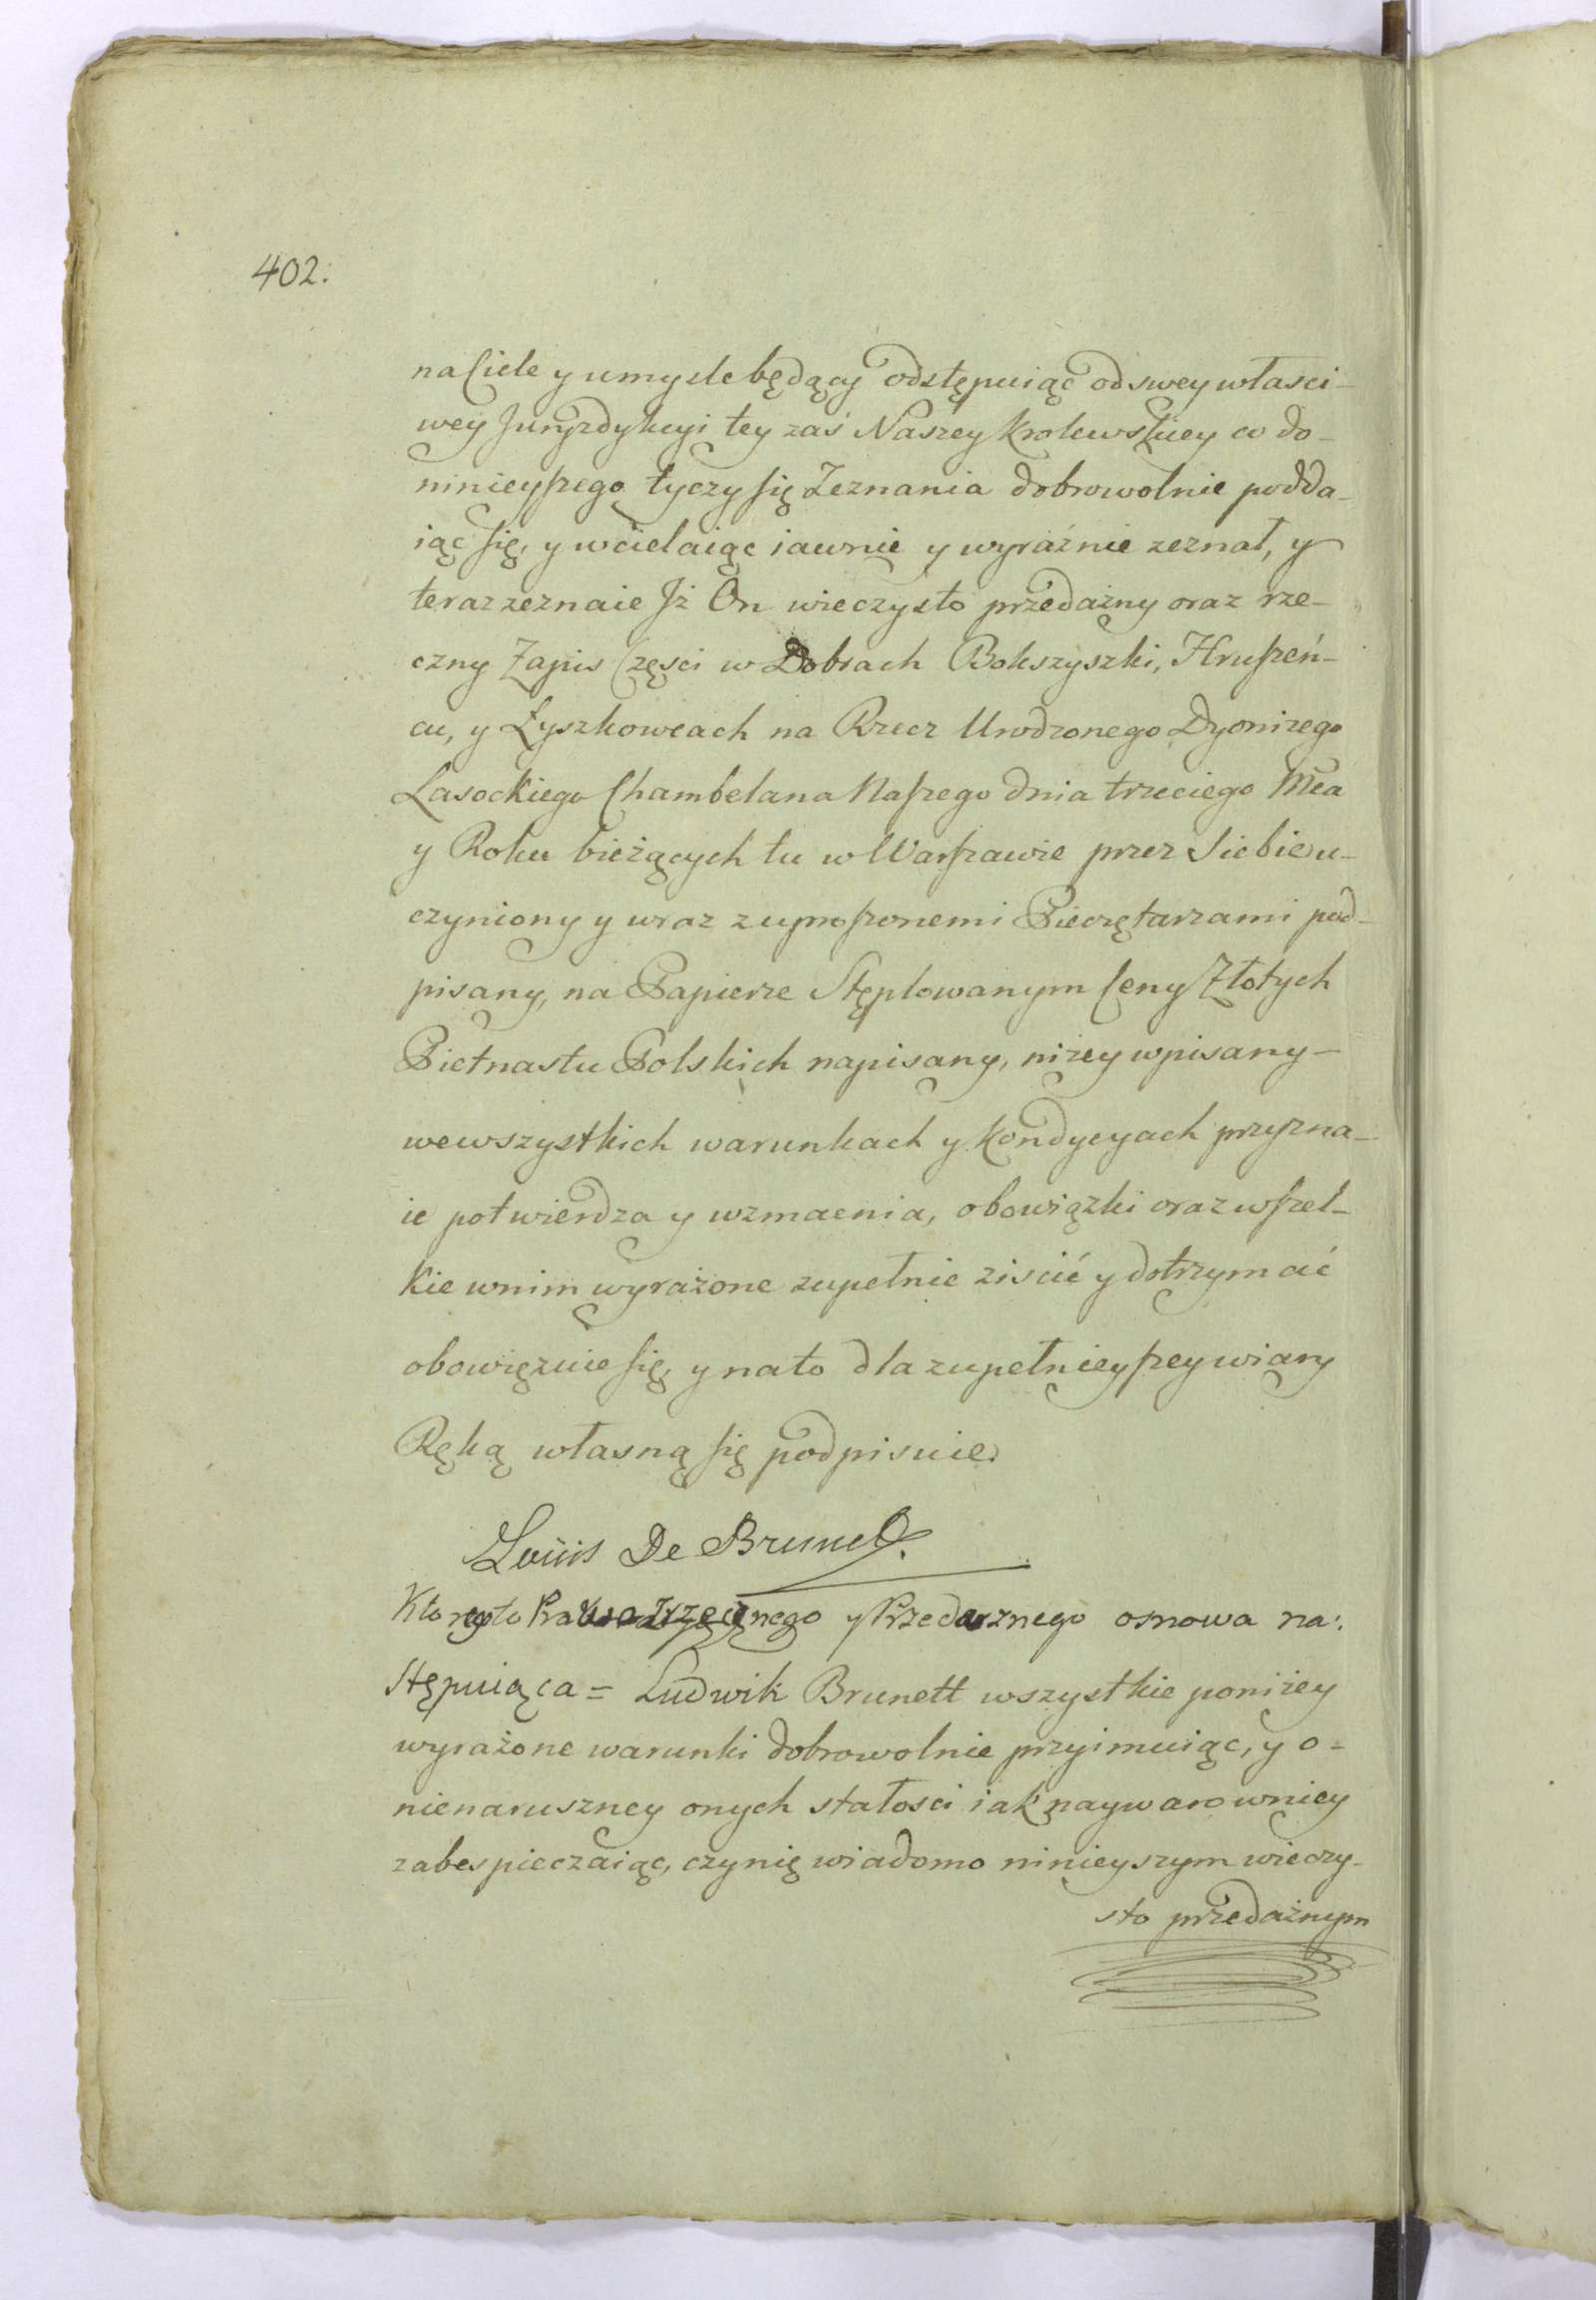 402.
na Ciele y umysle będący odstępuiąc od swey własci-
wey Juryzdykcyi tey zaś Naszey Krolewskiey co do-
ninieyszego tyczy się Zeznania dobrowolnie podda-
iąc się, y wcielaiąc iawnie y wyraźnie zeznał, y
teraz zeznaie Jż On wieczysto przedażny oraz rze-
czny Zapis Częsci w Dobrach Bokszyszki, Hruszeń-
cu, y Łyszkowcach na Rzecz Urodzonego Dyonizego
Lasockiego Chambelana Naszego dnia trzeciego Mca
y Roku bieżących tu w Warszawie przez Siebie u-
czyniony y wraz z uproszonemi Pieczętarzami pod-
pisany, na Papierze Stęplowanym Ceny Złotych
Pietnastu Polskich napisany, niżey wpisany-
we wszystkich warunkach y Kondycyach przyzna-
ie potwierdza y wzmacnia, obowiązki oraz wszel-
kie w nim wyrażone zupełnie ziscić y dotrzymać
obowięzuie się, y na to dla zupełnieyszey wiary
Ręką własną się podpisuie.
Louis De Brunet.
Ktorego to Prawa Wrzecznego y Przedażnego osnowa na:
stępuiąca = Ludwik Brunett wszystkie poniżey
wyrażone warunki dobrowolnie przyimuiąc, y o-
nienaruszney onych stałosci iak naywarowniey
zabespieczaiąc, czynię wiadomo ninieyszym wieczy-
sto przedażnym